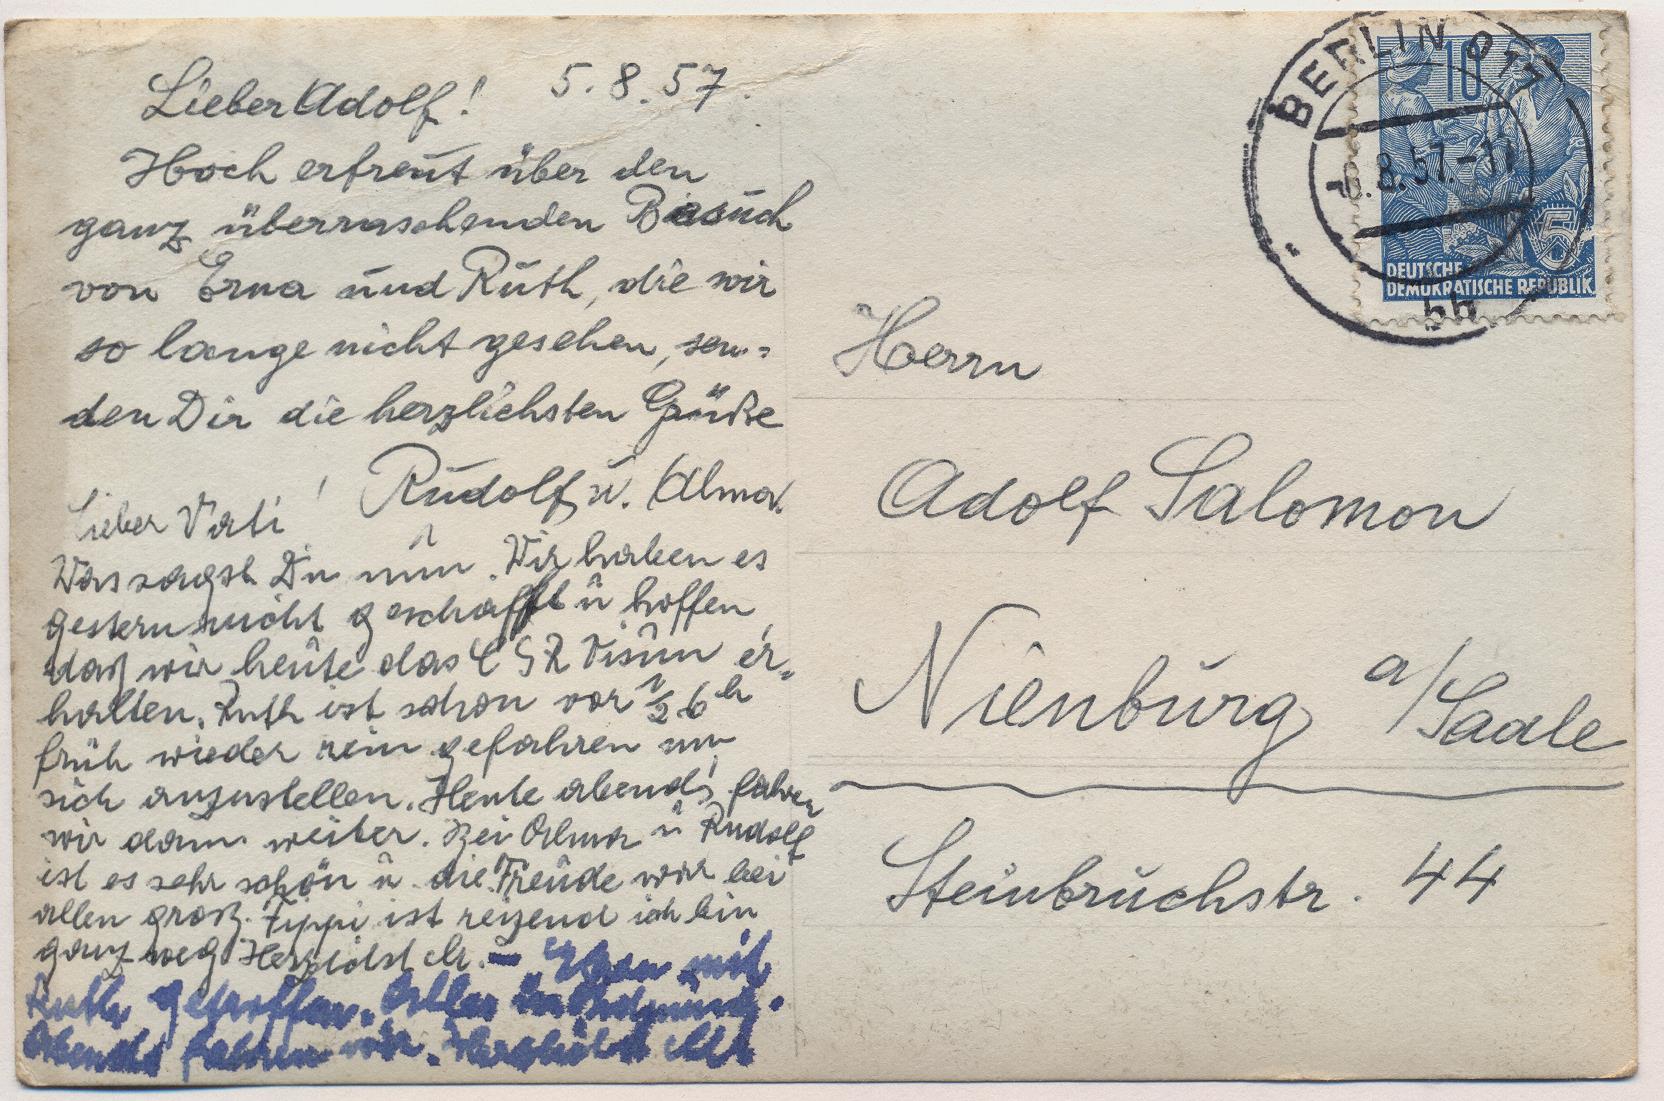 5.8.57.
Lieber Adolf!
Hoch erfreut über den
ganz überraschenden Besuch
von Erna und Ruth, die wir
so lange nicht gesehen, sen=
den Dir die herzlichsten Grüße
Rudolf u. Alma.
Lieber Vati!
Was sagst Du nun. Wir haben es
gestern nicht geschafft u hoffen,
daß wir heute das CSR Visum er-
halten. Ruth ist schon vor ½ 6 h
früh wieder rein gefahren um
sich anzustellen. Heute abend fahren
wir dann weiter. Bei Alma u Rudolf
ist es sehr schön u die Freude war bei
allen groß. Zippi ist reizend ich bin
ganz weg. Herzlichst
mit
Ruth getroffen. Alles in Ordnung.
Abends fahren wir. Herzlichst
BERLIN O 17
8.57.-
bb
10
5
DEUTSCHE
DEMOKRATISCHE REPUBLIK
Herrn
Adolf Salomon
Nienburg a/Saale
Steinbruchstr. 44